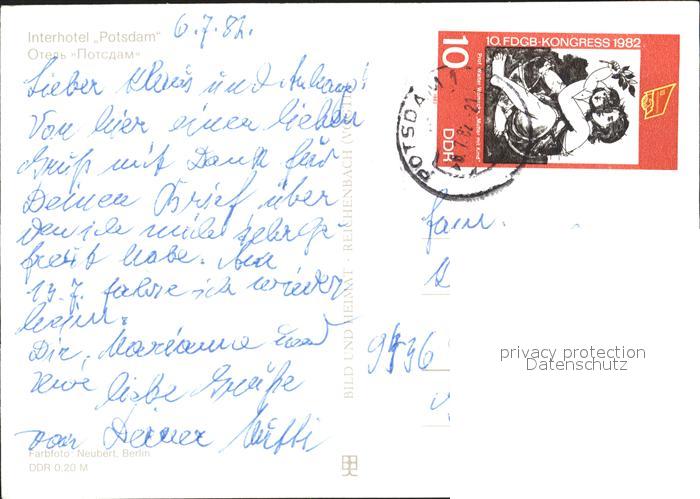 Interhotel „Potsdam"
Отель »Потсдам«
6.7.82.
Lieber Klaus und Anhang!
Von hier einen lieben
Gruß mit Dank für
Deinen Brief über
den ich mich sehr ge-
freut habe. Am
13.7. fahre ich wieder
heim.
Dir, Marianne und
liebe Grüße
von Deiner Mutti
Farbfoto: Neubert, Berlin
DDR 0,20 M
BILD UND HEIMAT · REICHENBACH (VOGTL
10. FDGB-KONGRESS 1982
10
DDR
Prof. Walter Womacka „Mutter mit Kind"
POTSDAM
Fam.
9536
privacy protection
Datenschutz